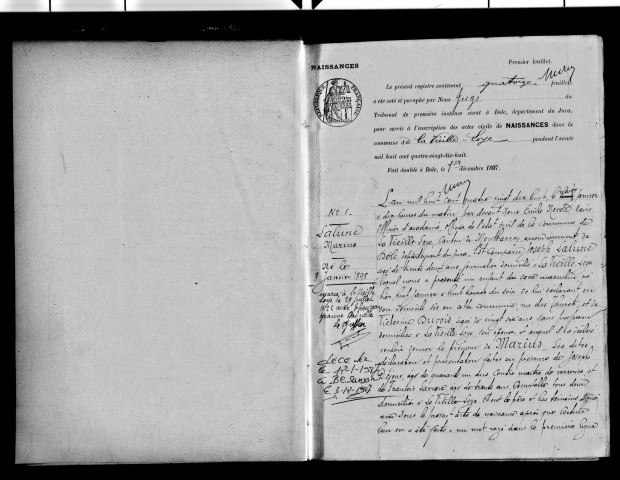 NAISSANCES
Premier feuillet.
Le présent registre contenant quatorze feuillets
a été coté et paraphé par Nous Juge du
Tribunal de première instance séant à Dole, département du Jura,
pour servir à l'inscription des actes civils de NAISSANCES dans la
commune d'à La Vieille-Loye pendant l'année
mil huit cent quatre-vingt-dix-huit.
Fait double à Dole, le 1er décembre 1897.
RÉPUBLIQUE FRANÇAISE
N° 1.
Salune
Marius
Né le
8 Janvier 1898
L'an mil huit cent quatre vingt dix huit, le janvier
à dix heures du matin par devant Nous Emile
officier d'académie, officier de l'état civil de la commune de
La Vieille Loye, canton de Montbarrey, arrondissement de
Dole, département du Jura, est comparu Joseph Salune
âgé de trente deux ans, journalier, domicilié à La Vieille Loye
lequel nous a présenté un enfant du sexe masculin né
hier huit janvier à huit heures du soir de lui déclarant en
son domicile sis en cette commune, rue des et de
Victorine Dubois, âgée de vingt six ans, sans profession
domiciliée à La Vieille Loye son épouse et auquel il a déclaré
vouloir donner le prénom de Marius. Les dites
déclaration et présentation faites en présence de Joseph
âgé de quarante un ans, contre maître de verrerie, et
de François âgé de trente ans, tous deux
domiciliés à La Vieille-Loye. Et ont le père et les témoins signé
avec Nous le présent acte de naissance après que lecture
leur en a été faite. un mot rayé dans la première ligne
marié à la Vieille
Loye le 20 juillet
décédé
à Besançon